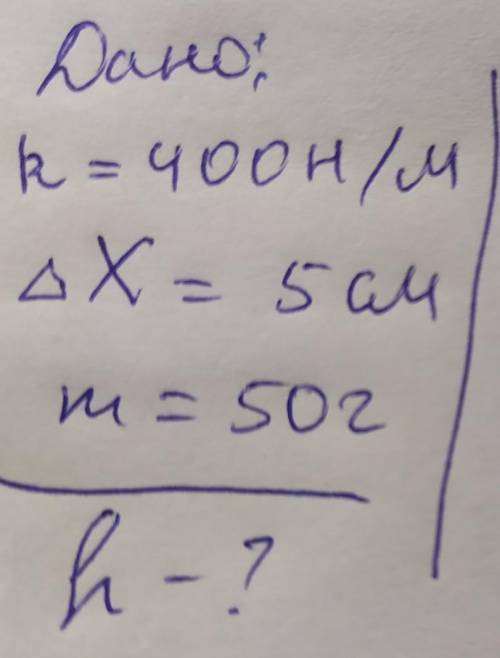 Дано:
k = 400Н/м
△X = 5см
m = 50г
h - ?